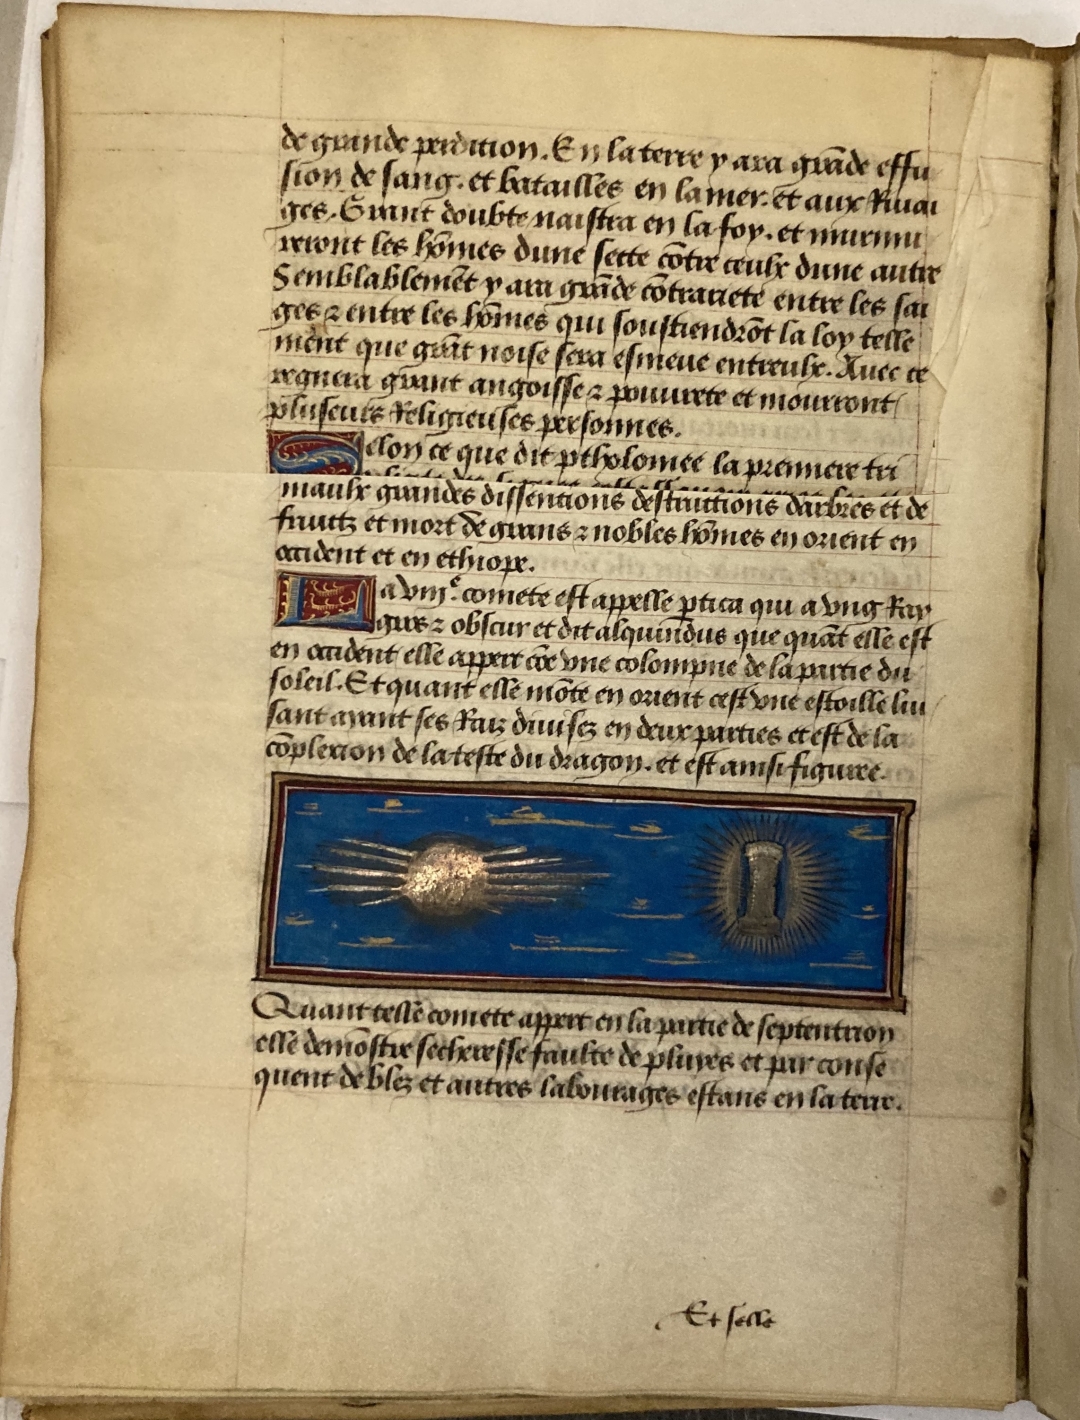 de grande perdition. En la terre y ara grāde effu
sion de sang. et batailles en la mer. et aux Riuai
ges. Grant doubte naistra en la foy. et murmu
reront les hōmes dune sette cōtre ceulx dune autre
Semblablemēt y ara grāde cōtrariete entre les sai
ges ⁊ entre les hōmes qui soustiendrōt la loy telle
ment que grāt noise sera esmeue entreulx. Auec ce
regnera grant angoisse ⁊ pouurete et mourront
pluseurs Religieuses personnes.
Selon ce que dit ptholomee la premiere tri
maulx grandes dissentions destructions darbres et de
fruitz et mort de grans ⁊ nobles hōmes en orient en
occident et en ethiope.
La viijᵉ comete est appelle ꝑtica qui a vng Ray
gros ⁊ obscur et dit alquindus que quāt elle est
en occident elle appert cōe vne colompne de la partie du
soleil. Et quant elle mōte en orient cest vne estoille lui
sant ayant ses Raiz diuisez en deux parties et est de la
cōplexion de la teste du dragon. et est ainsi figuree.
Quant telle comete appert en la partie de septentrion
elle demōstre secheresse faulte de pluyes et par conse
quent de blez et autres labourages estans en la terre.
Et selle